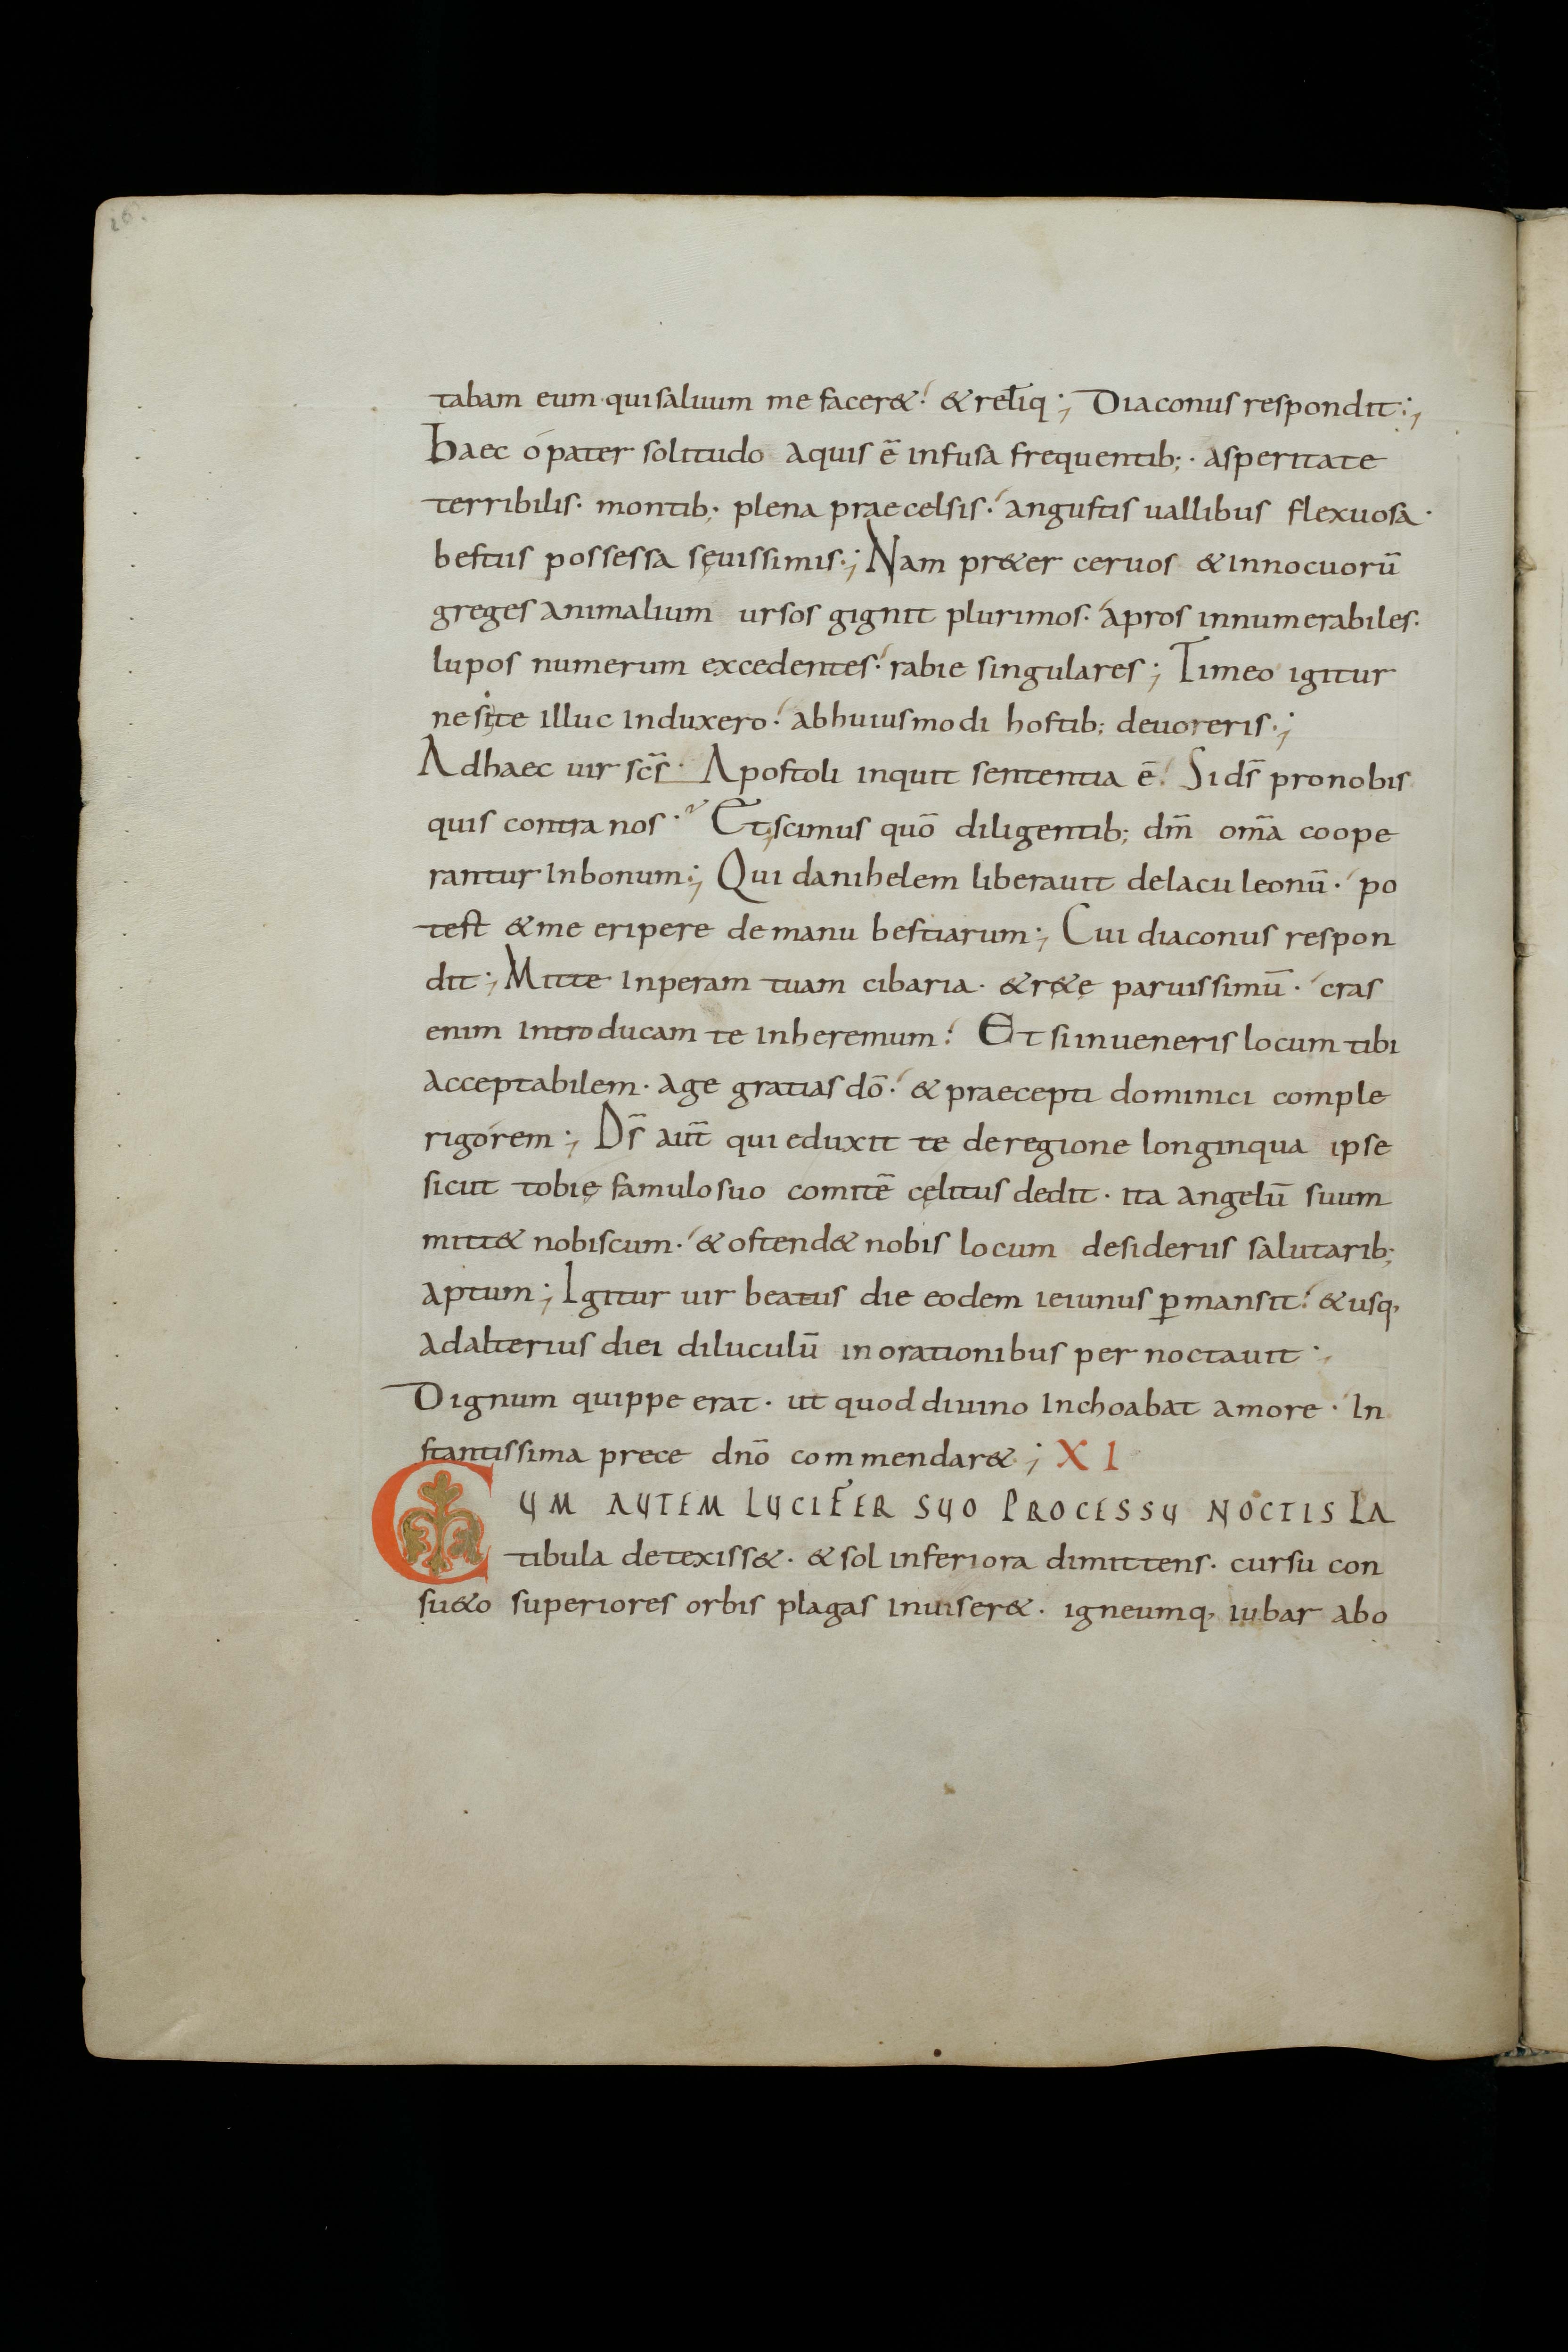 tabam eum· qui saluum me facer&· & reƚiq·; Diaconus respondit·;
Haec ó pater solitudo aquis ē infusa frequentib;· asperitate
terribilis· montib;· plena praecelsis· angustis uallibus flexuosa·
bestiis possessa sęuissimis·; Nam pr&er ceruos & innocuorū
greges animalium ursos gignit plurimos· apros innumerabiles·
lupos numerum excedentes· rabie singulares; Timeo igitur
ne si te illuc induxero· ab huiusmodi hostib; deuoreris·;
Ad haec uir scs̄· Apostoli inquit sententia ē· Si ds̄ pro nobis
quis contra nos·? Et scimus quō diligentib; dm̄ om̄a coope
rantur in bonum·; Qui danihelem liberauit de lacu leonū· po
test & me eripere de manu bestiarum·; Cui diaconus respon
dit·; Mitte in peram tuam cibaria· & r&e paruissimū· cras
enim introducam te in heremum· Et si inueneris locum tibi
acceptabilem· age gratias dō· & praecepti dominici comple
rigorem·; Ds̄ aut̄ qui eduxit te de regione longinqua ipse
sicut tobię famulo suo comitē cęlitus dedit· ita angelū suum
mitt& nobiscum· & ostend& nobis locum desideriis salutarib;
aptum; Igitur uir beatus die eodem ieiunus ꝑmansit· & usq,
ad alterius diei diluculū in orationibus pernoctauit·,
Dignum quippe erat· ut quod diuino inchoabat amore· In
stantissima prece dnō commendar&·; XI
CUM AUTEM LUCIFER SUO PROCESSU NOCTIS LA
tibula detexiss&· & sol inferiora dimittens· cursu con
su&o superiores orbis plagas inuiser&· igneumq, iubar abo